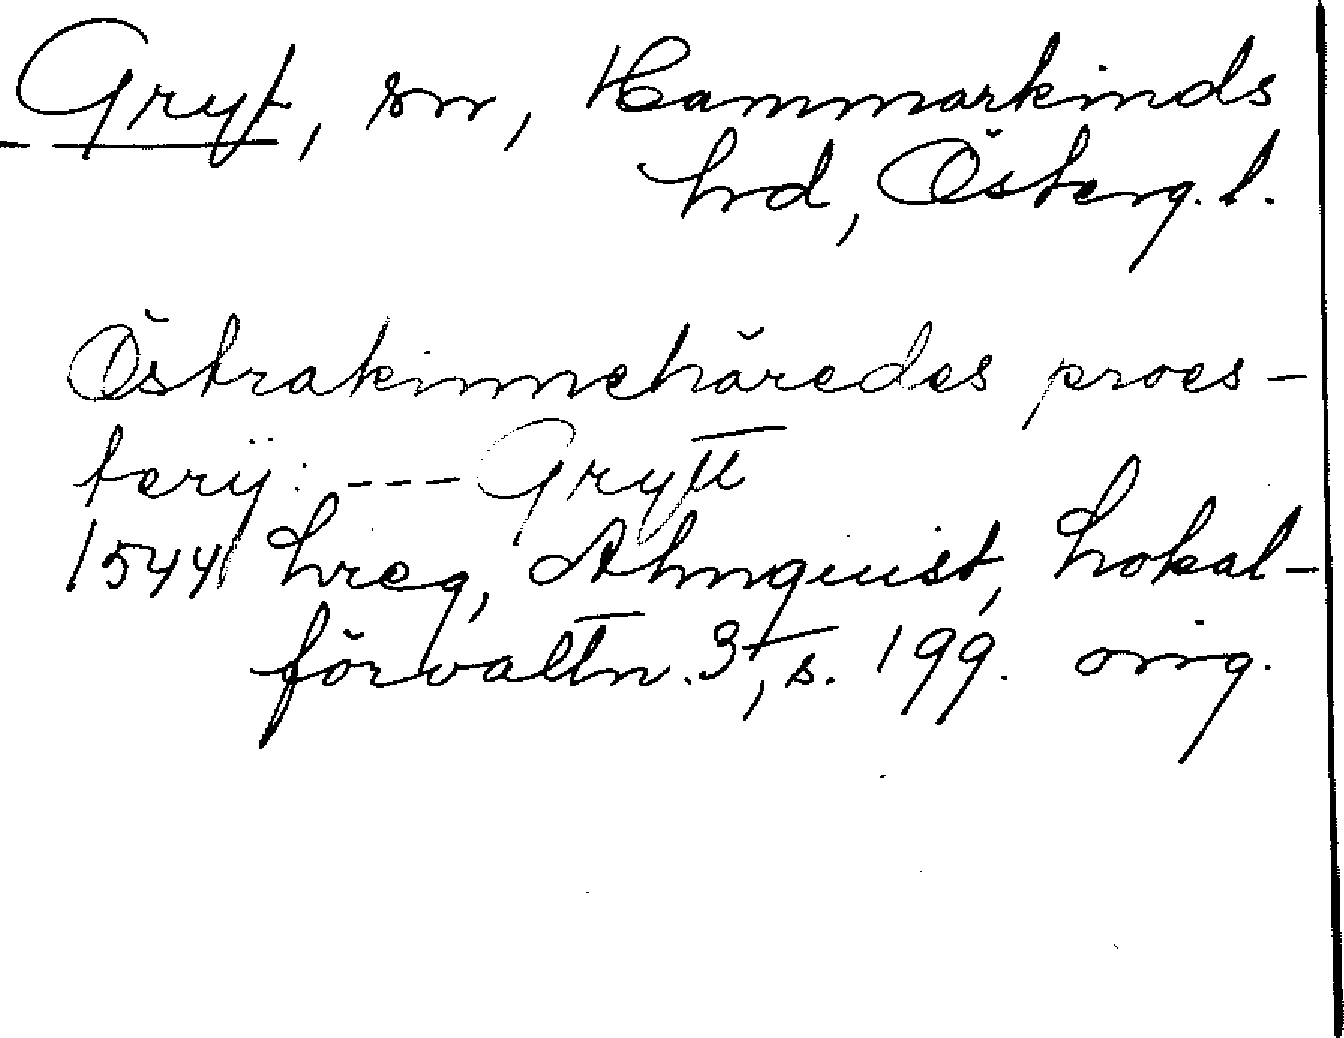 Gryt, sn, Hammarkinds
hd, Österg.l.
Östrakinnehäredes proes-
terij: --- Grytt
1544 hreg, Almquist, Lokal-
förvaltn. 3, s. 199. orig.